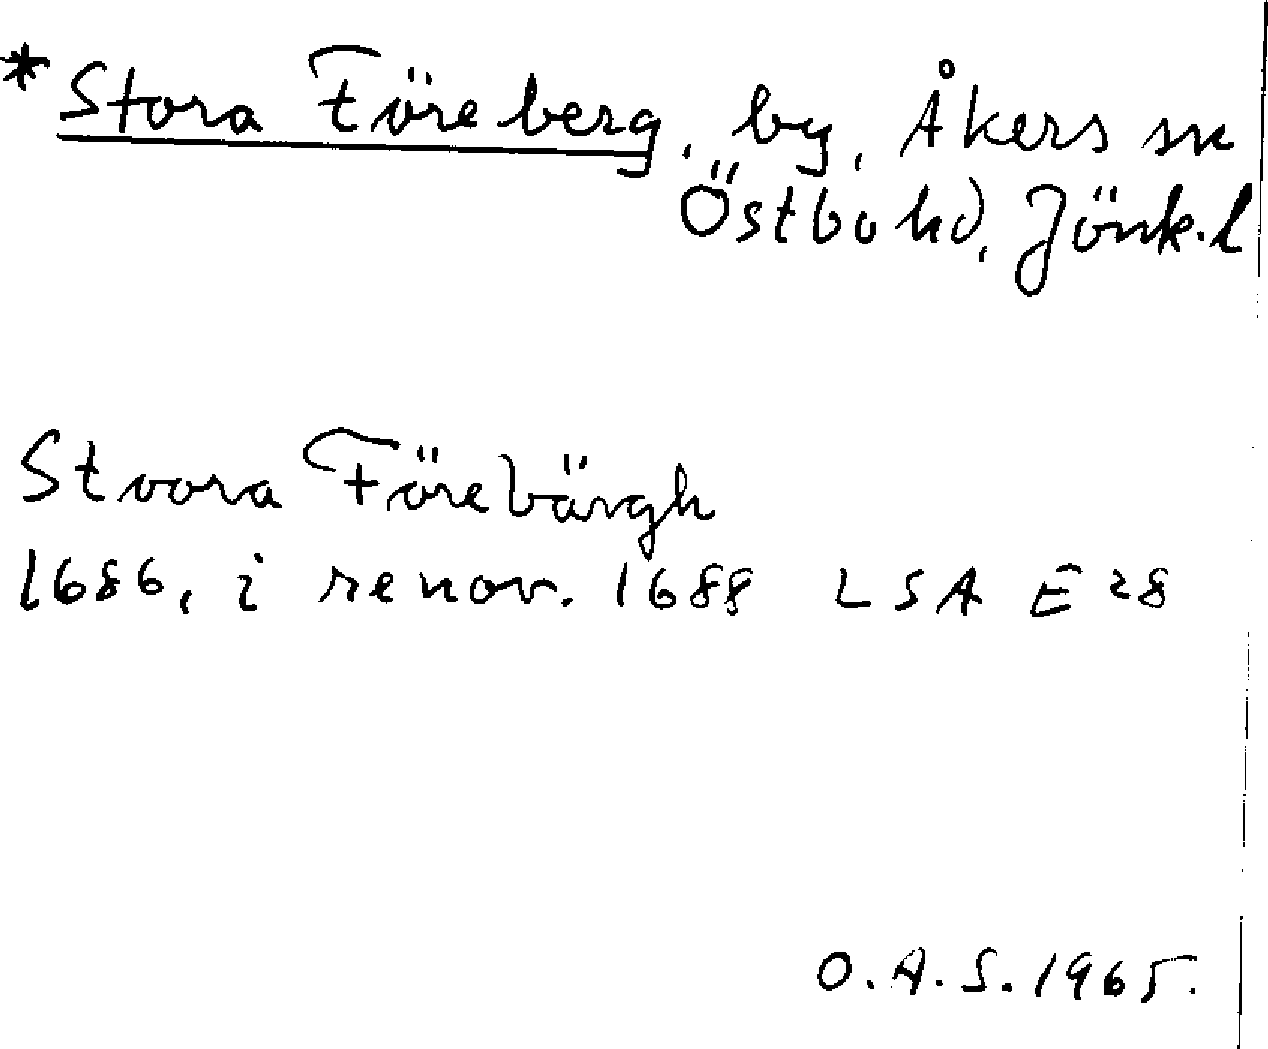 *Stora Föreberg, by, Åkers sn
Östbo hd, Jönk. l
Stoora Förebärgh
1686, i renov. 1688 LSA E28
O.A.S. 1965.